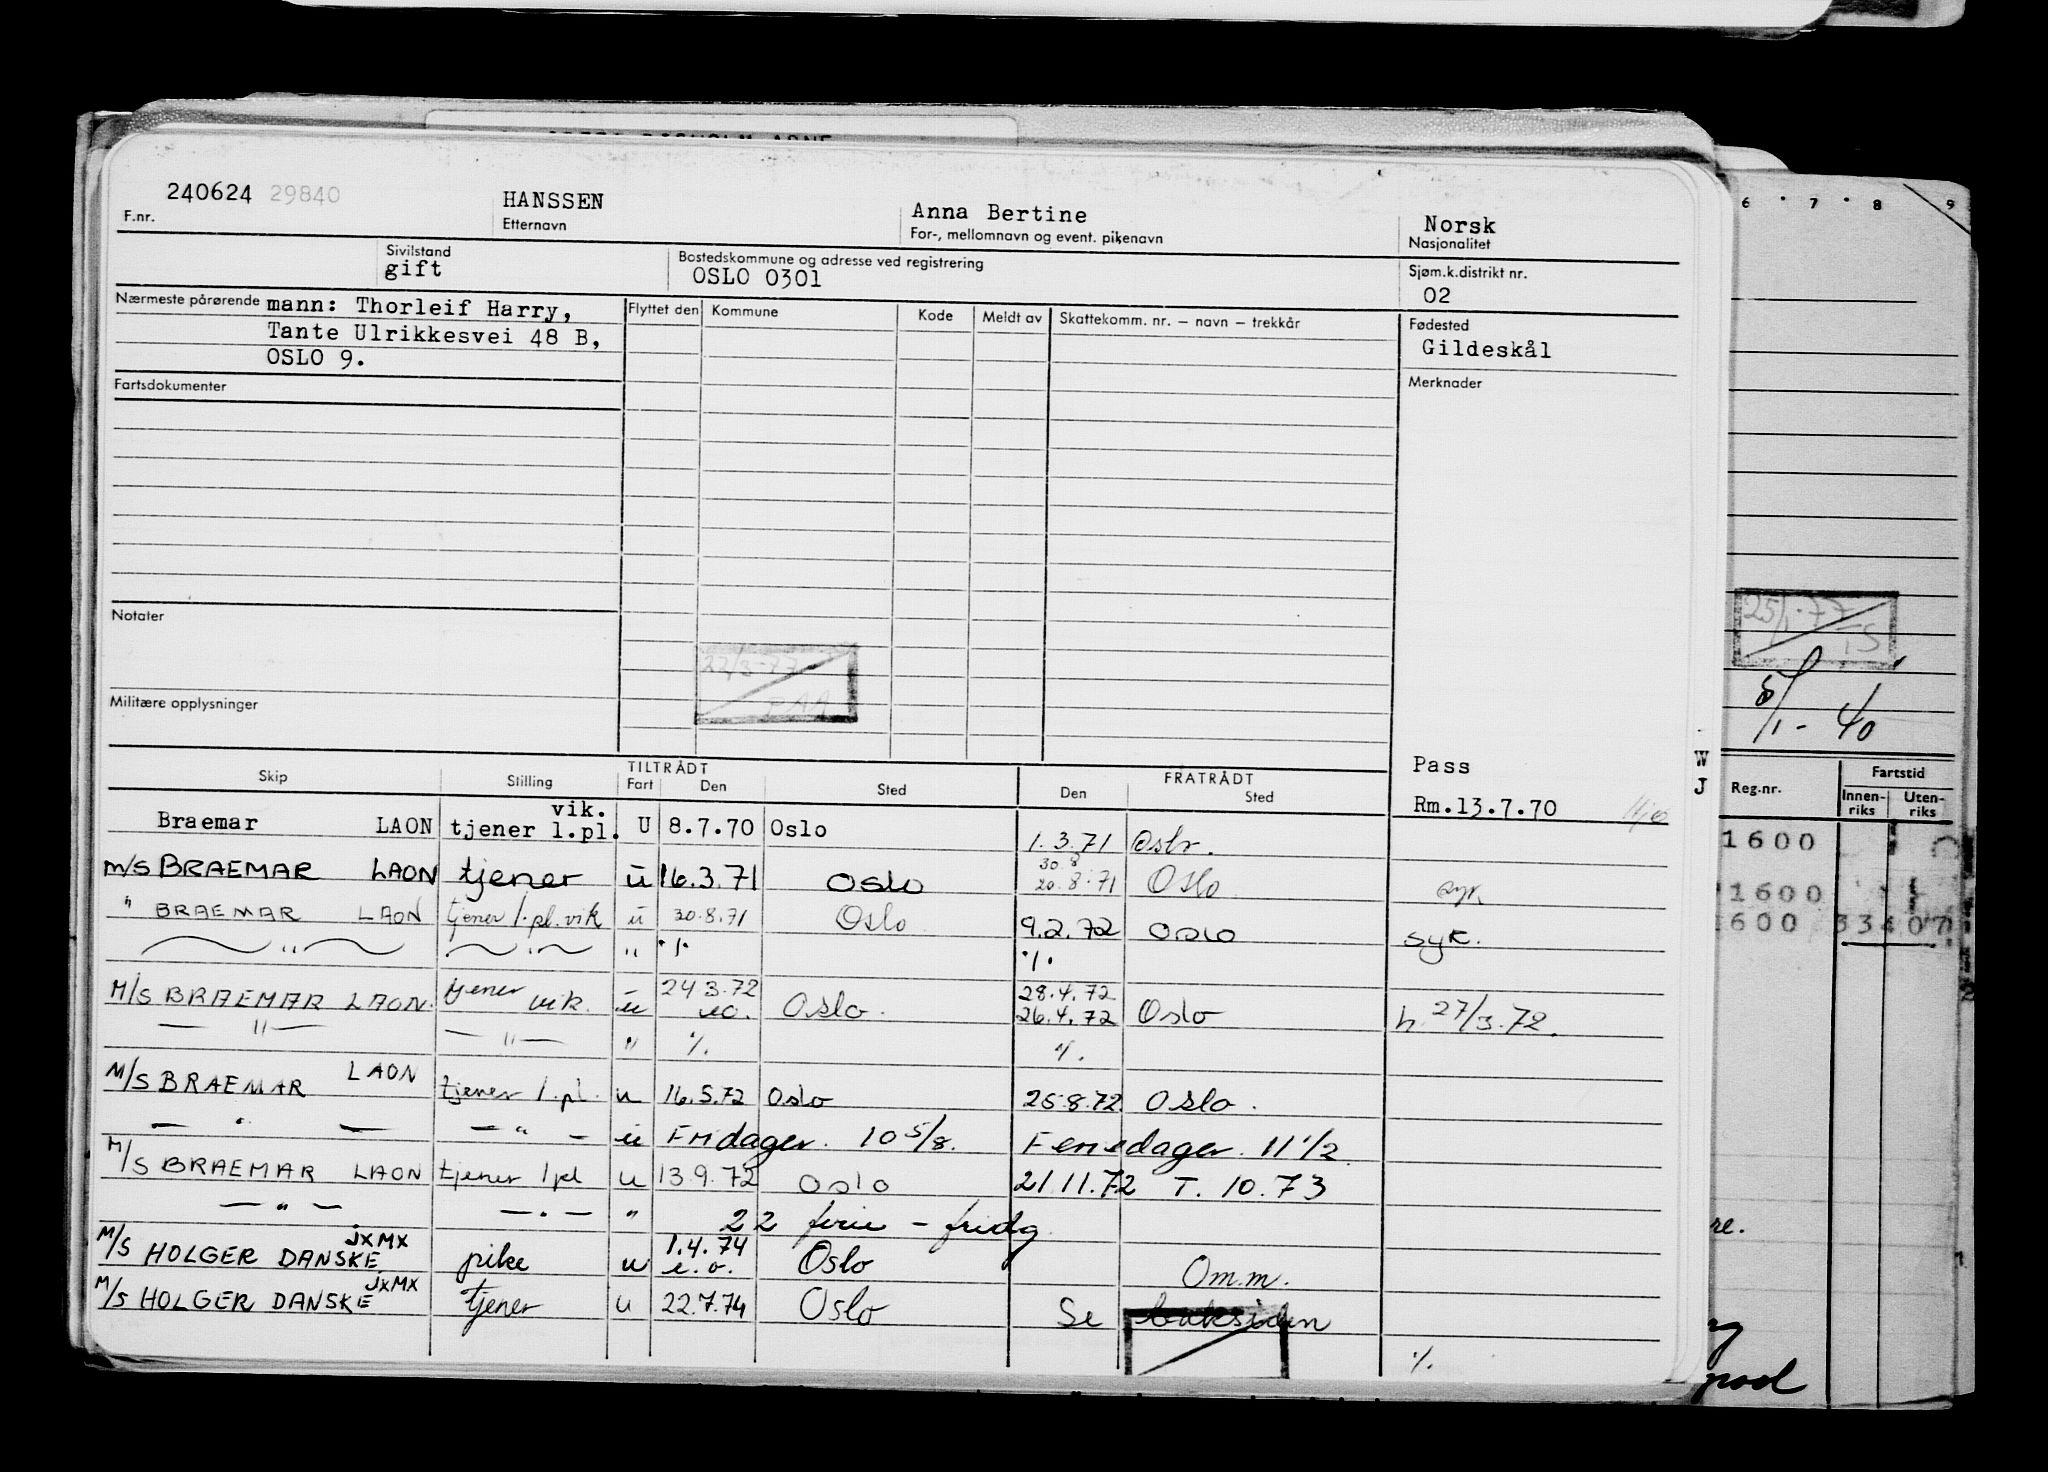 240624 29840 HANSSEN Anna Bertine Norsk
F.nr. Etternavn For-, mellomnavn og event. pikenavn Nasjonalitet
Sivilstand Bostedskommune og adresse ved registrering Sjøm.k.distrikt nr.
gift OSLO 0301 02
Nærmeste pårørende mann: Thorleif Harry, Flyttet den Kommune Kode Meldt av Skattekomm. nr. – navn – trekkår Fødested
Tante Ulrikkesvei 48 B, Gildeskål
OSLO 9.
Fartsdokumenter Merknader
Notater
Militære opplysninger
Pass
Skip Stilling TILTRÅDT FRATRÅDT
Fart Den Sted Den Sted
Rm.13.7.70
Braemar LAON vik. tjener 1.pl. U 8.7.70 Oslo 1.3.71 Oslo.
M/S BRAEMAR LAON tjener u 16.3.71 Oslo 30.8 20.8.71 Oslo syk
" BRAEMAR LAON tjener 1.pl. vik u 30.8.71 Oslo 9.2.72 Oslo syk.
" " " ./. ./.
M/S BRAEMAR LAON. tjener vik. u 24 3.72 eo. Oslo. 28.4.72 26.4.72 Oslo h. 27/3.72.
— " — — " — " ./. ./.
M/S BRAEMAR LAON tjener 1.pl. u 16.5.72 Oslo 25.8.72 Oslo.
— " — — " — u Fridager. 10 5/8. Feriedager. 11 1/2
M/S BRAEMAR LAON tjener 1pl u 13.9.72 Oslo 21.11.72 T. 10.73
— " — — " — " 22 ferie – fridg.
M/S HOLGER DANSKE JXMX pike u 1.4.74 e.o. Oslo Om.m.
M/S HOLGER DANSKE JXMX tjener u 22.7.74 Oslo Se baksiden
./.
6 7 8 9
25/1.77
TS
/1 - 40
W
J
Reg.nr. Fartstid
Innen- riks Uten- riks
1600
1600
600
re.